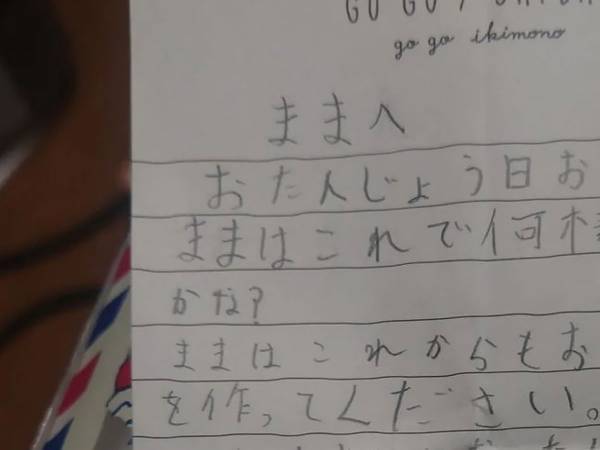 go go ikimono
ままへ
おたんじょう日お
ままはこれで何
かな?
ままはこれからもお
を作ってください。